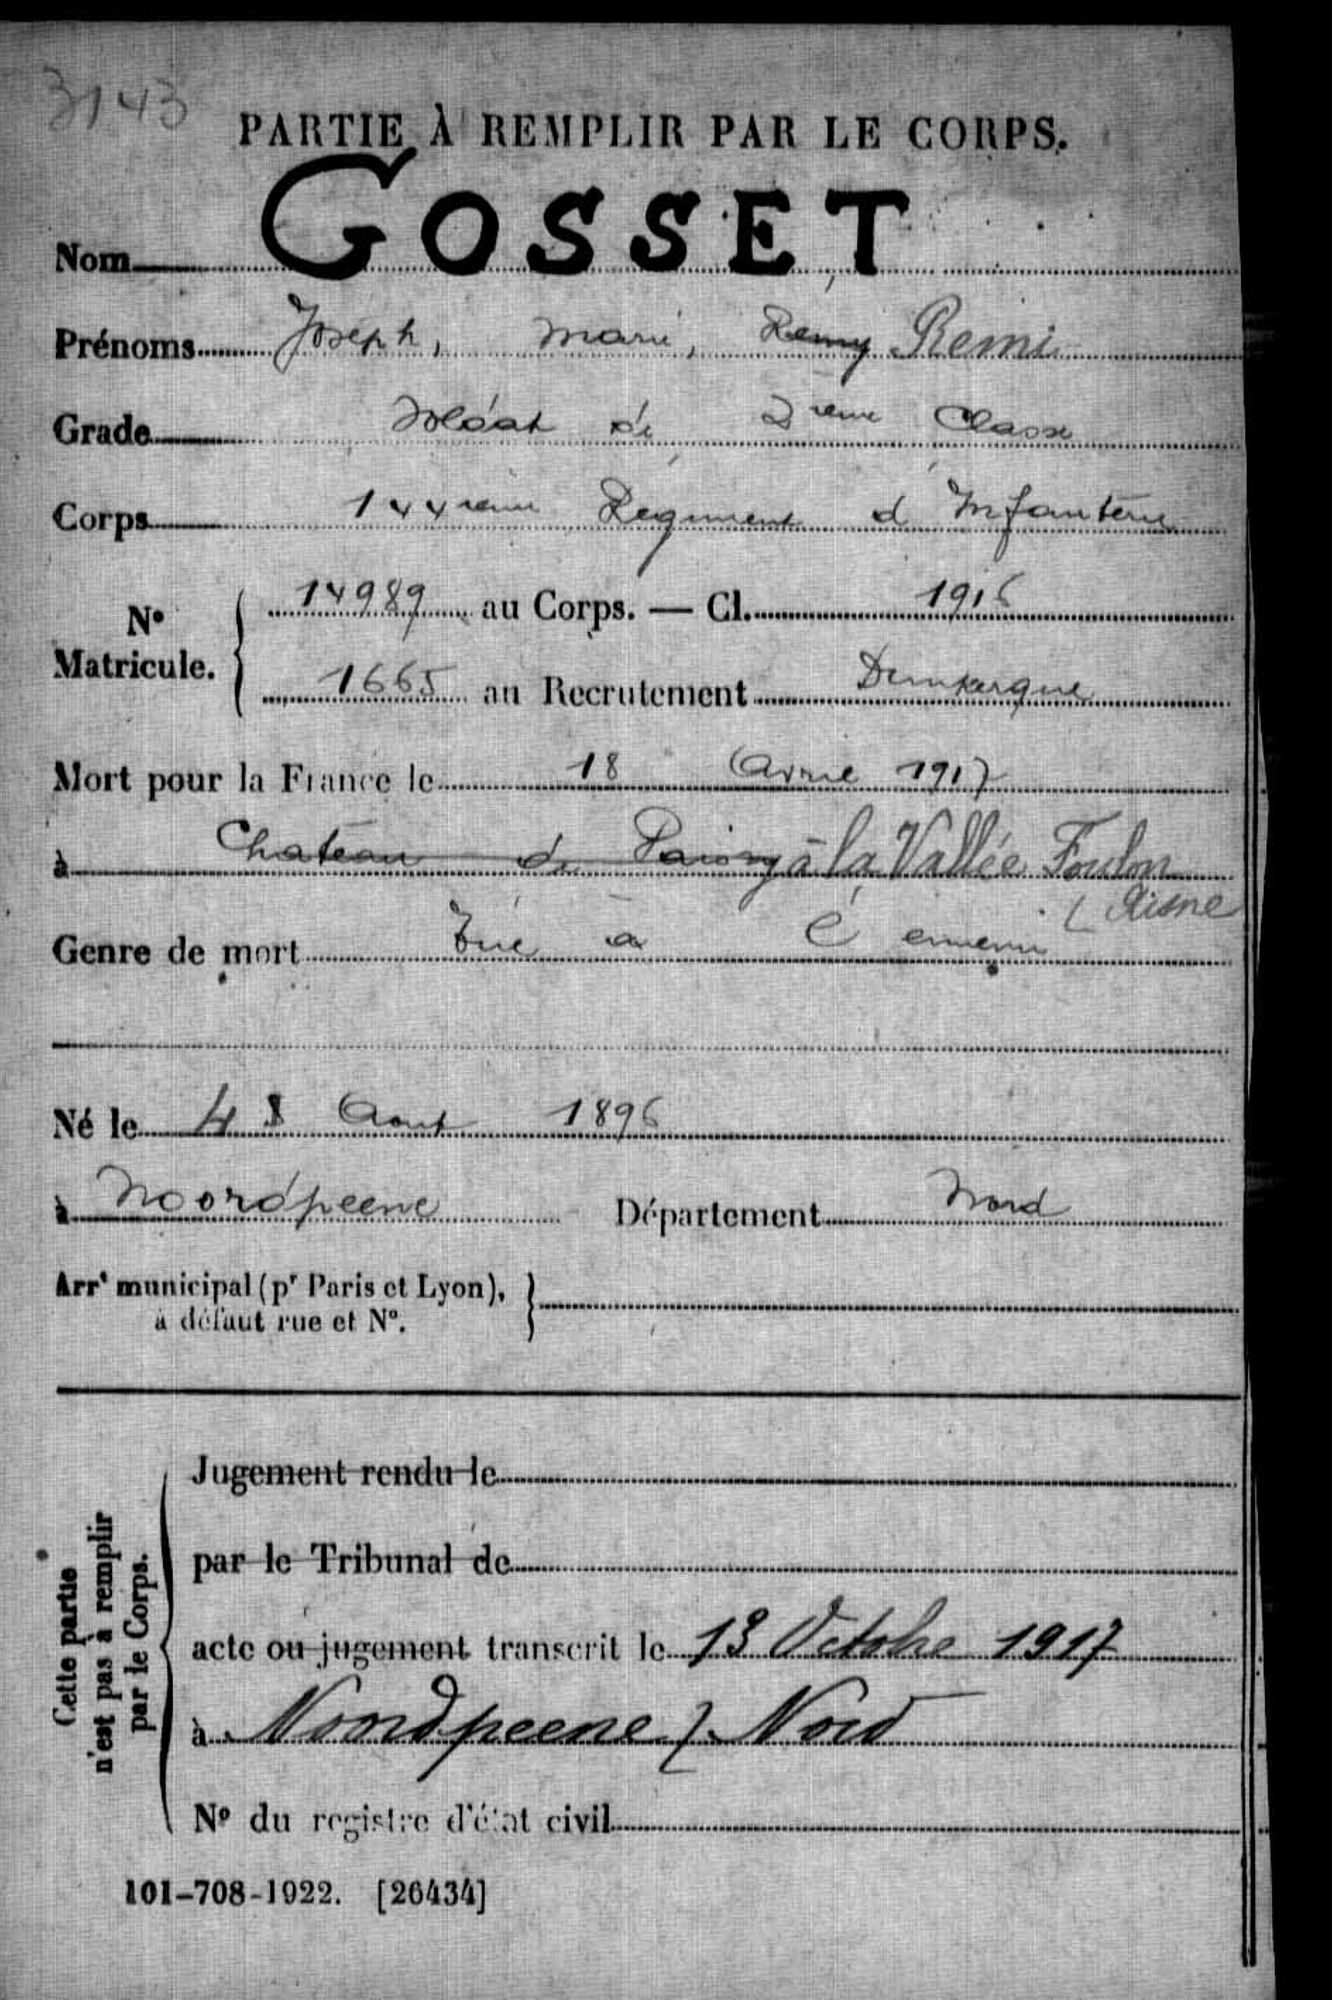 3143
PARTIE À REMPLIR PAR LE CORPS.
Nom GOSSET
Prénoms Joseph, Marie, Remy Remi
Grade Soldat de 2eme Classe
Corps 144eme Régiment d'Infanterie
No Matricule. { 14989 au Corps. — Cl. 1916
1665 au Recrutement Dunkerque
Mort pour la France le 18 Avril 1917
à Chateau de Paissy à la Vallée Foulon
(Aisne
Genre de mort Tué à l'ennemi
Né le 4 Aout 1896
à Noordpeene Département Nord
Arrt municipal (pr Paris et Lyon),
à défaut rue et No.
Cette partie
n'est pas à remplir
par le Corps.
Jugement rendu le
par le Tribunal de
acte ou jugement transcrit le 13 Octobre 1917
à Noordpeene / Nord
No du registre d'état civil
101-708-1922. [26434]